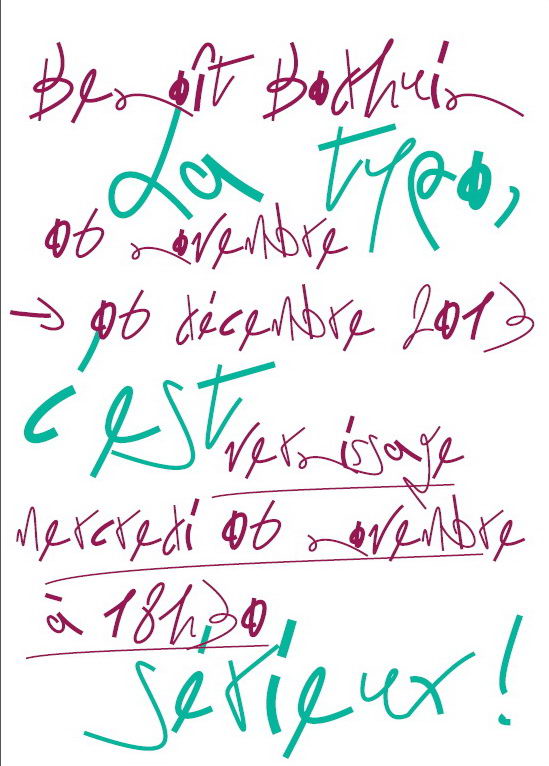 Benoît Bodhuin
La typo,
06 novembre
→ 06 décembre 2013
c'est
vernissage
mercredi 06 novembre
à 18h30
sérieux !